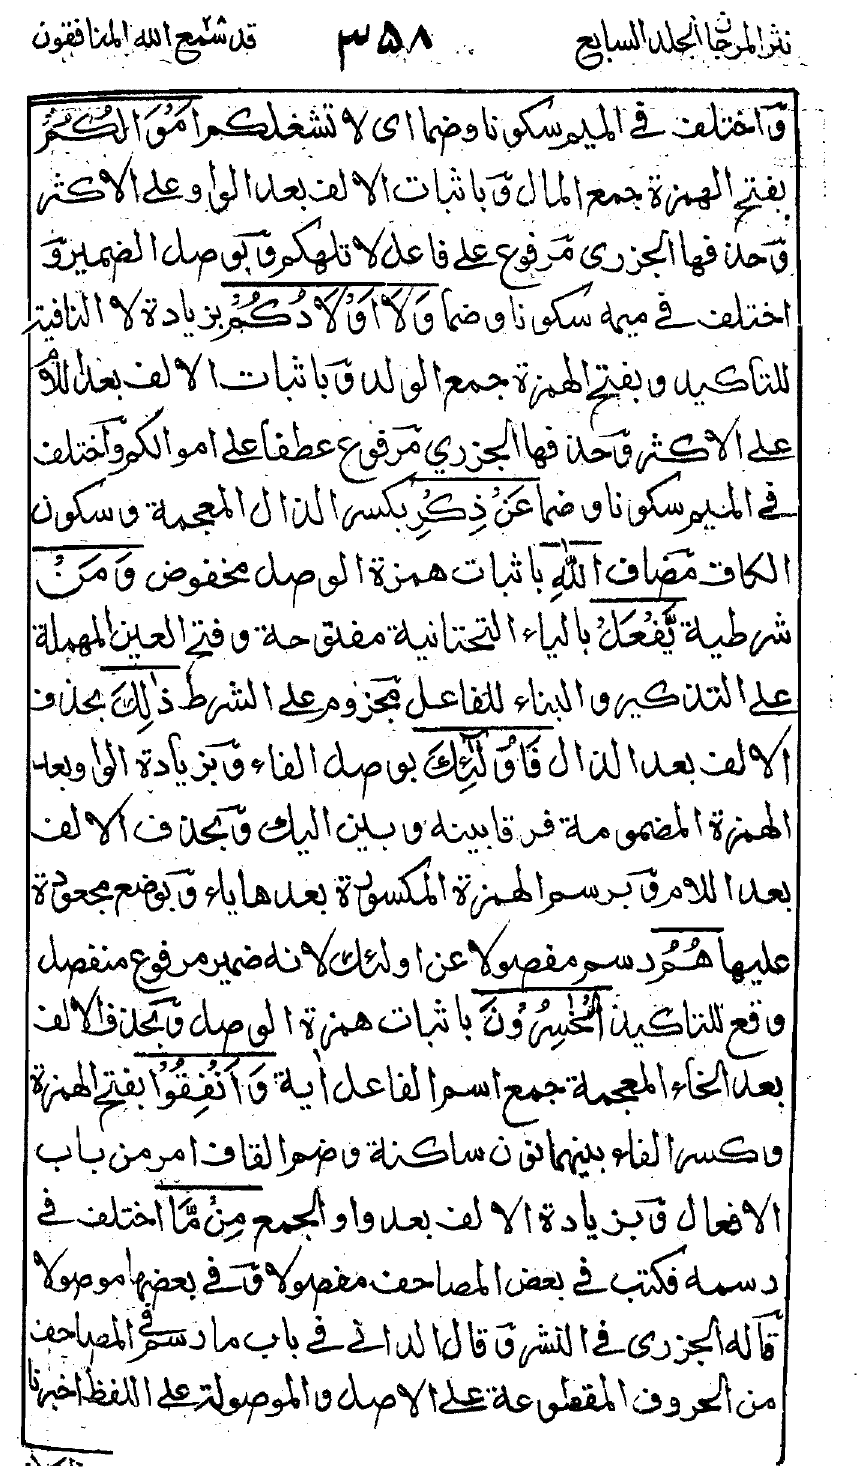 نثر المرجان الجلد السابع
٣٥٨
قد سمع الله المنافقون
وَاختلف في الميم سكونا وضما اى لا تشغلكم اَمْوَالُكُمْ
بفتح الهمزة جمع المال وَباثبات الالف بعد الواو على الاكثر
وَحذفها الجزرى مَرفوع على فاعل لا تلهكم وَبوصل الضمير وَ
اختلف في ميمه سكونا وضما وَلَآ اَوْلَادُكُمْ بزيادة لا النافية
للتاكيد وبفتح الهمزة جمع الولد وَباثبات الالف بعد اللام
على الاكثر وَحذفها الجزري مَرفوع عطفا على اموالكم وَاختلف
في الميم سكونا وضما عَنْ ذِكْرِ بكسر الذال المعجمة وسكون
الكاف مَضاف اللّٰهِ باثبات همزة الوصل مخفوض وَمَنْ
شرطية يَّفْعَلْ بالياء التحتانية مفتوحة وفتح العين المهملة
على التذكير والبناء للفاعل مَجزوم على الشرط ذٰلِكَ بحذف
الالف بعد الذال فَاُولٰٓئِكَ بوصل الفاء وَبزيادة الواو بعد
الهمزة المضمومة فرقا بينه وبين اليك وَبحذف الالف
بعد اللام وَبرسم الهمزة المكسورة بعدها ياء وَبوضع مجعودة
عليها هُمُ رسم مفصولا عن اولئك لانه ضمير مرفوع منفصل
وقع للتاكيد الْخٰسِرُوْنَ باثبات همزة الوصل وَبحذف الالف
بعد الخاء المعجمة جمع اسم الفاعل اٰية وَاَنْفِقُوْا بفتح الهمزة
وكسر الفاء بينهما نون ساكنة وضم القاف امر من باب
الافعال وَبزيادة الالف بعد واو الجمع مِنْ مَّا اختلف في
رسمه فكتب في بعض المصاحف مفصولا وَفي بعضها موصولا
قَاله الجزرى في النشر وَقال الدانى في باب ما رسم في المصاحف
من الحروف المقطوعة على الاصل والموصولة على اللفظ اخبرنا